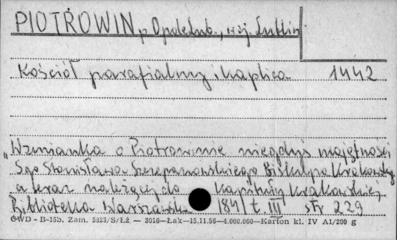 PIOTROWIN p. Opole Lub., woj. Lublin
Kościół parafialny i kaplica 1442
"Wzmianka o Piotrowinie niegdyś majętności
Sgo Stanisława Szczepanowskiego Biskupa Krakowsk.
a teraz należącej do Kapituły Krakowskiej.
Biblioteka Warszawska 1841 t. III str 229
GWD - B-15b. Zam. 5823/S/Łż — 3016—Łak—15.11.56—4.000.000—Karton kl. IV A1/200 g